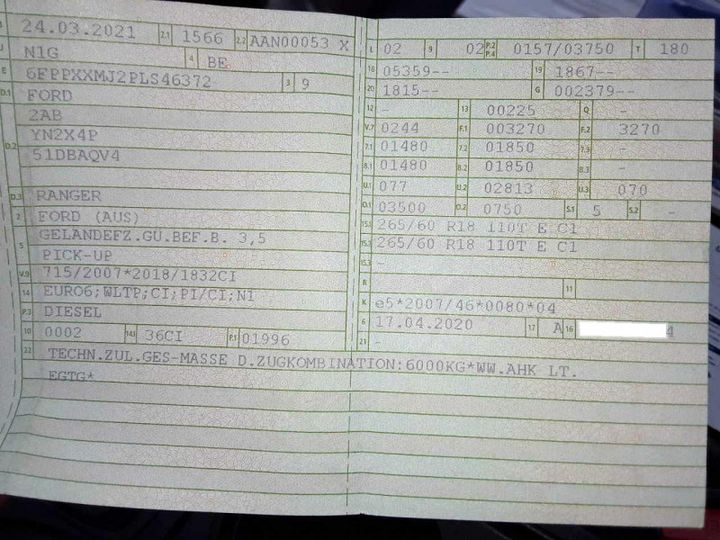 B 24.03.2021 2.1 1566 2.2 AAN00053 X
J N1G 4 BE
E 6FPPXXMJ2PLS46372 3 9
D.1 FORD
2AB
D.2 YN2X4P
51DBAQV4
D.3 RANGER
2 FORD (AUS)
5 GELÄNDEFZ.GÜ.BEF.B. 3,5
PICK-UP
V.9 715/2007*2018/1832CI
14 EURO6;WLTP;CI;PI/CI;N1
P.3 DIESEL
10 0002 14.1 36CI P.1 01996
22 TECHN.ZUL.GES-MASSE D.ZUGKOMBINATION:6000KG*WW.AHK LT.
EGTG*
L 02 9 02 P.2 P.4 0157/03750 T 180
18 05359-- 19 1867--
20 1815-- G 002379--
12 - 13 00225 Q -
V.7 0244 F.1 003270 F.2 3270
7.1 01480 7.2 01850 7.3 -
8.1 01480 8.2 01850 8.3 -
U.1 077 U.2 02813 U.3 070
O.1 03500 O.2 0750 S.1 5 S.2 -
15.1 265/60 R18 110T E C1
15.2 265/60 R18 110T E C1
15.3 -
R 11
K e5*2007/46*0080*04
6 17.04.2020 17 A 16 4
21 -